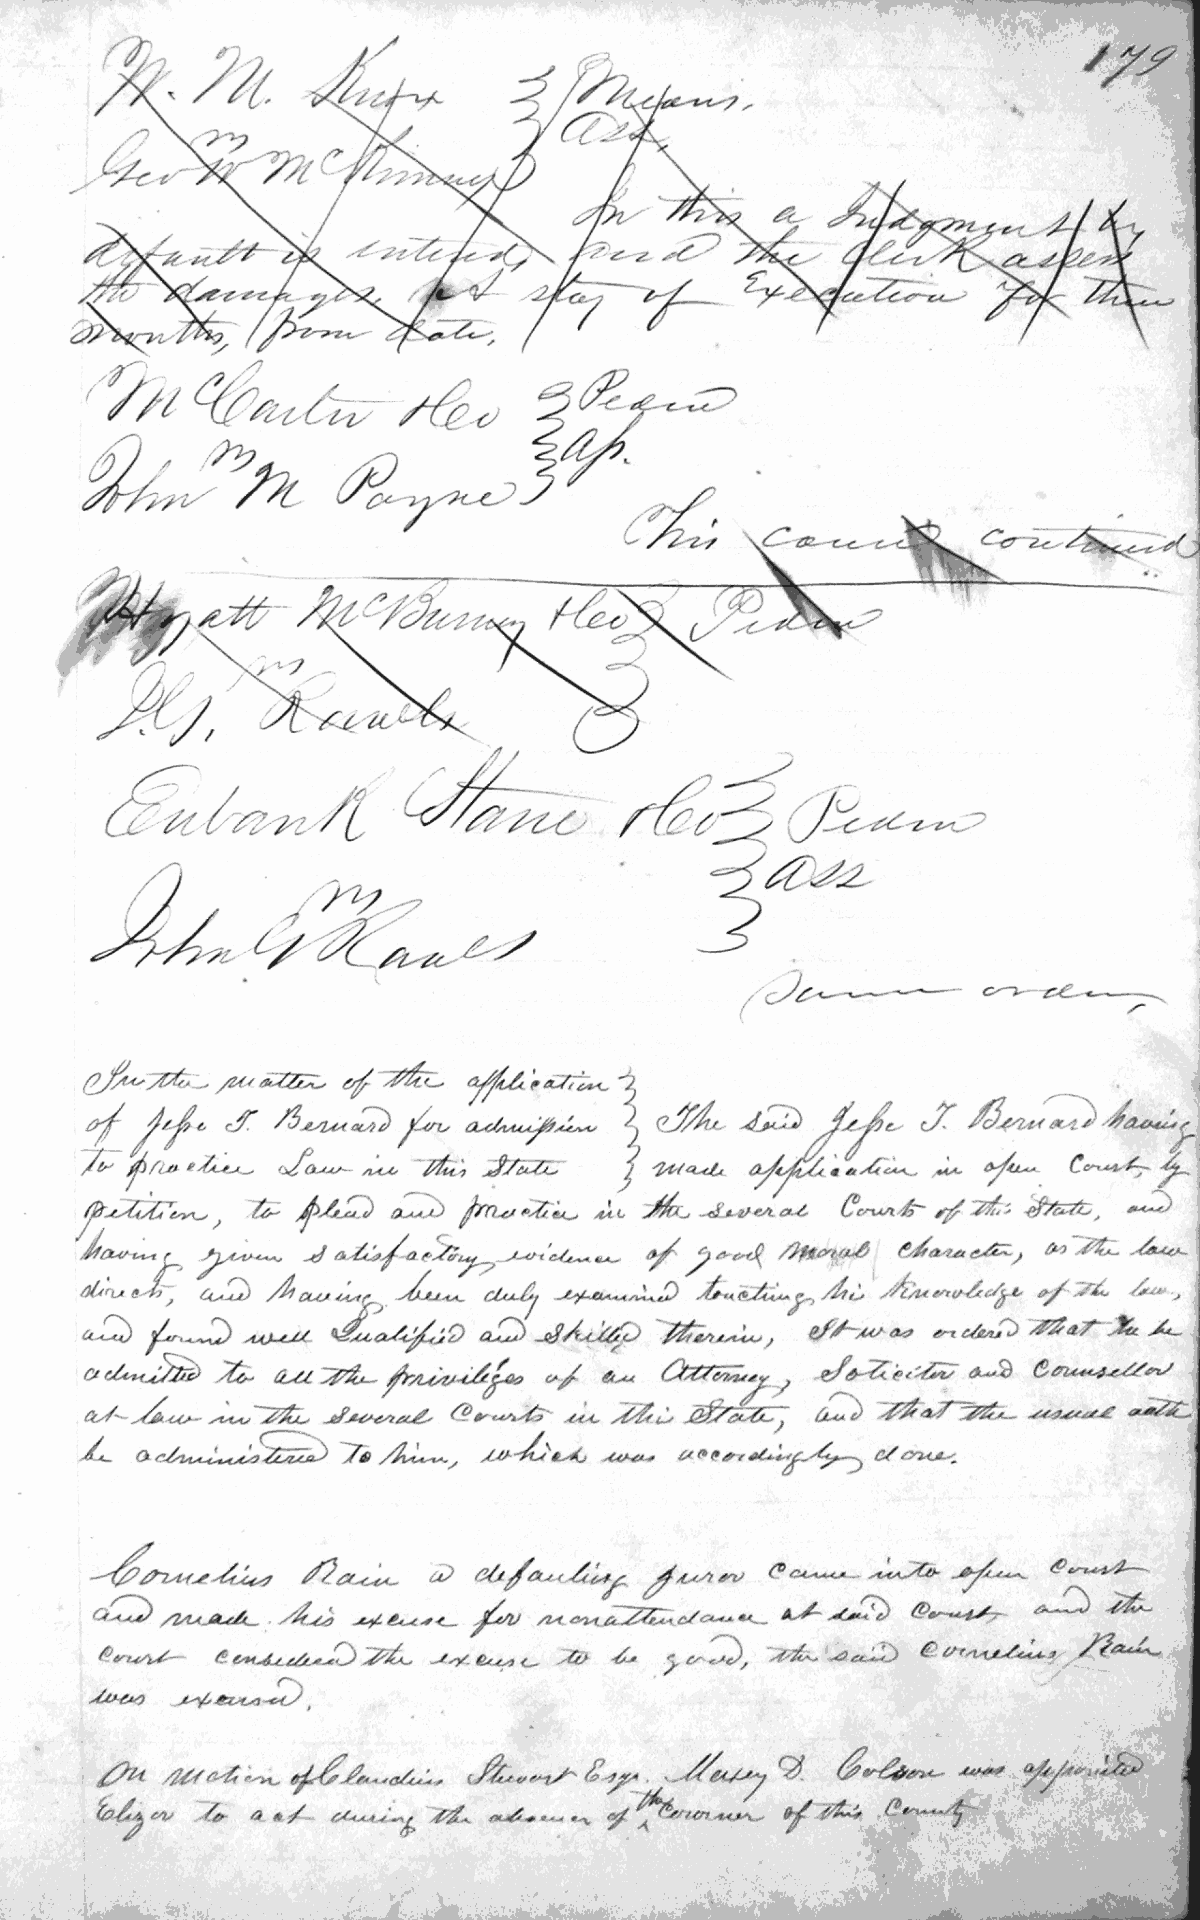 179
W. M. Knox } Means.
vs } Ass,
Geo W McKinney }
In this a Judgment by
default is entered, and the Clerk assess
the damages, stay of Execution for three
months, from date.
McCarter & Co } Pearce
vs } Ass.
John M Payne }
This cause continued
Hyatt McBurney & Co } 
vs
J.G. Rawls }
Eubank Stane & Co }
vs } Ass
John G Rawls }
Same order,
In the matter of the application }
of Jesse T. Bernard for admission } The said Jesse T. Bernard having
to practice Law in this State } made application in open Court, by
petition, to plead and practice in the several Courts of this State, and
having given satisfactory evidence of good moral character, as the law
directs, and having been duly examined touching his knowledge of the law,
and found well Qualified and skilled therein, It was ordered that he be
admitted to all the privileges of an Attorney, Solicitor and Counsellor
at law in the several Courts in this State, and that the usual oath
be administered to him, which was accordingly done.
Cornelius Rain a defaulting juror came into open Court
and made his excuse for nonattendance at said Court, and the
court considered the excuse to be good, the said Cornelius Rain
was excused.
On motion of Claudius Stewart Esqr. Maxey D. Colson was appointed
Elizor to act during the absence of the Cororner of this County